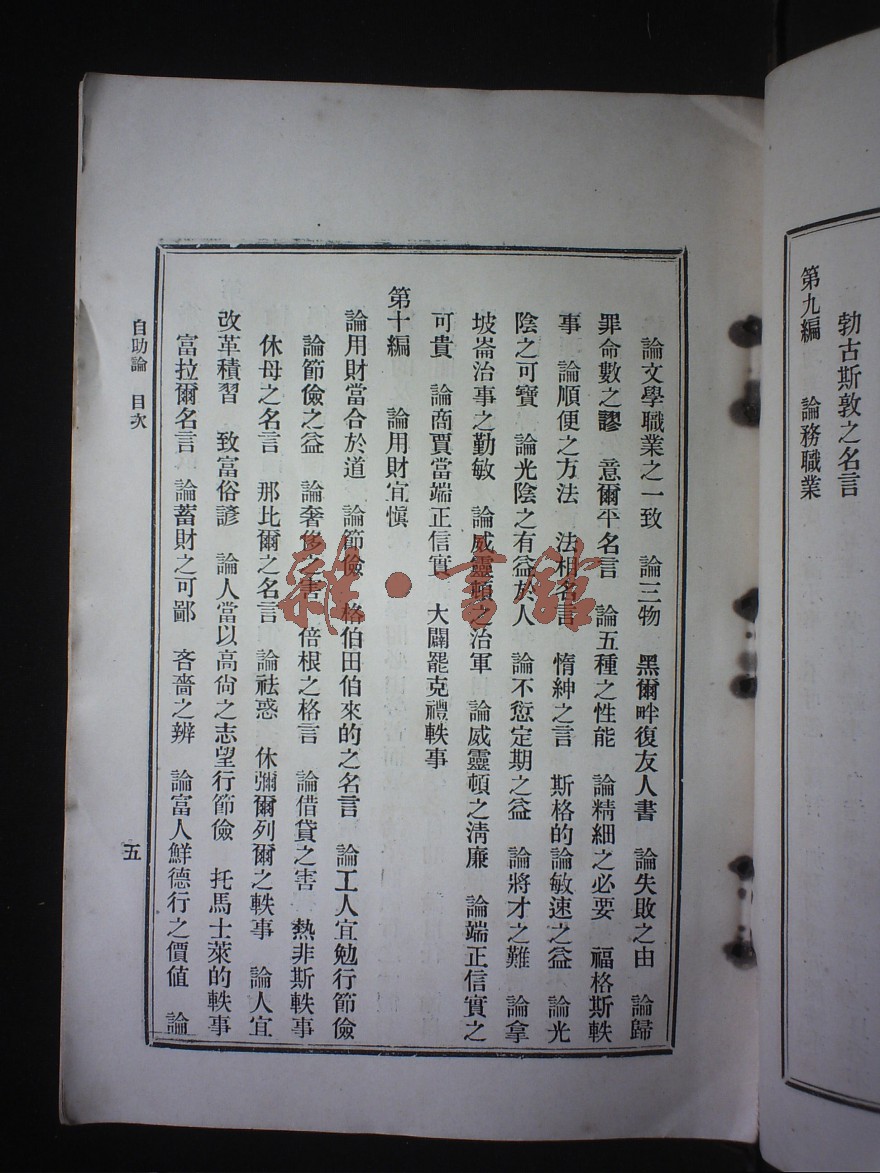 勃古斯敦之名言
第九編 論務職業
論文學職業之一致 論三物 黑爾畔復友人書 論失敗之由 論歸
罪命數之謬 意爾平名言 論五種之性能 論精細之必要 福格斯軼
事 論順便之方法 法相名言 惰紳之言 斯格的論敏速之益 論光
陰之可寶 論光陰之有益於人 論不愆定期之益 論將才之難 論拿
坡崙治事之勤敏 論威靈頓之治軍 論威靈頓之清廉 論端正信實之
可貴 論商賈當端正信實 大闢罷克禮軼事
第十編 論用財宜愼
論用財當合於道 論節儉 格伯田伯來的之名言 論工人宜勉行節儉
論節儉之益 論奢侈之害 倍根之格言 論借貸之害 熱非斯軼事
休母之名言 那比爾之名言 論祛惑 休彌爾列爾之軼事 論人宜
改革積習 致富俗諺 論人當以高尙之志望行節儉 托馬士萊的軼事
富拉爾名言 論蓄財之可鄙 吝嗇之辨 論富人鮮德行之價値 論
自助論 目次
五
雜·書館